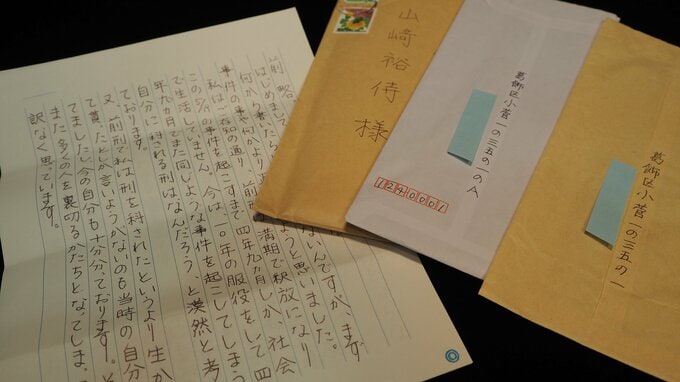 前略
はじめまし
何から書 ないんですが、まず
事件の事や何かより 前刑 ようと思いました。
私は、ご存知の通り 満期で釈放になり
この 事件を起こすまで四年九ヵ月しか、社会
で生活していません。今は、一〇年の服役をして四
年九ヵ月でまた同じような事件を起こしてしまう
自分に科される刑はなんだろう、と漠然と考
ております。
又、前刑で私は刑を科されたというより生か
て貰ったとしか言いようがないのも当時の自分
てましたし、今の自分も十分分っております。そ
また多くの人を裏切るかたちとなってしま
訳なく思っています。
山﨑裕侍様
葛飾区小菅一の三五の一のA
1240001
葛飾区小菅一の三五の一